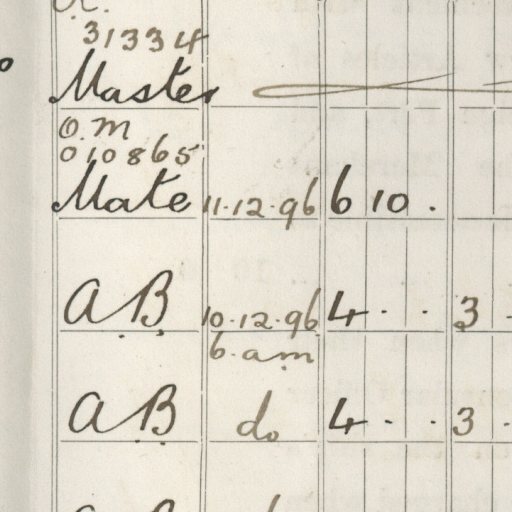 31334
Master
O.M
010865
Mate 11.12.96 6 10 .
AB 10.12.96 4 . . 3 .
6 am
AB do 4 . . 3 .